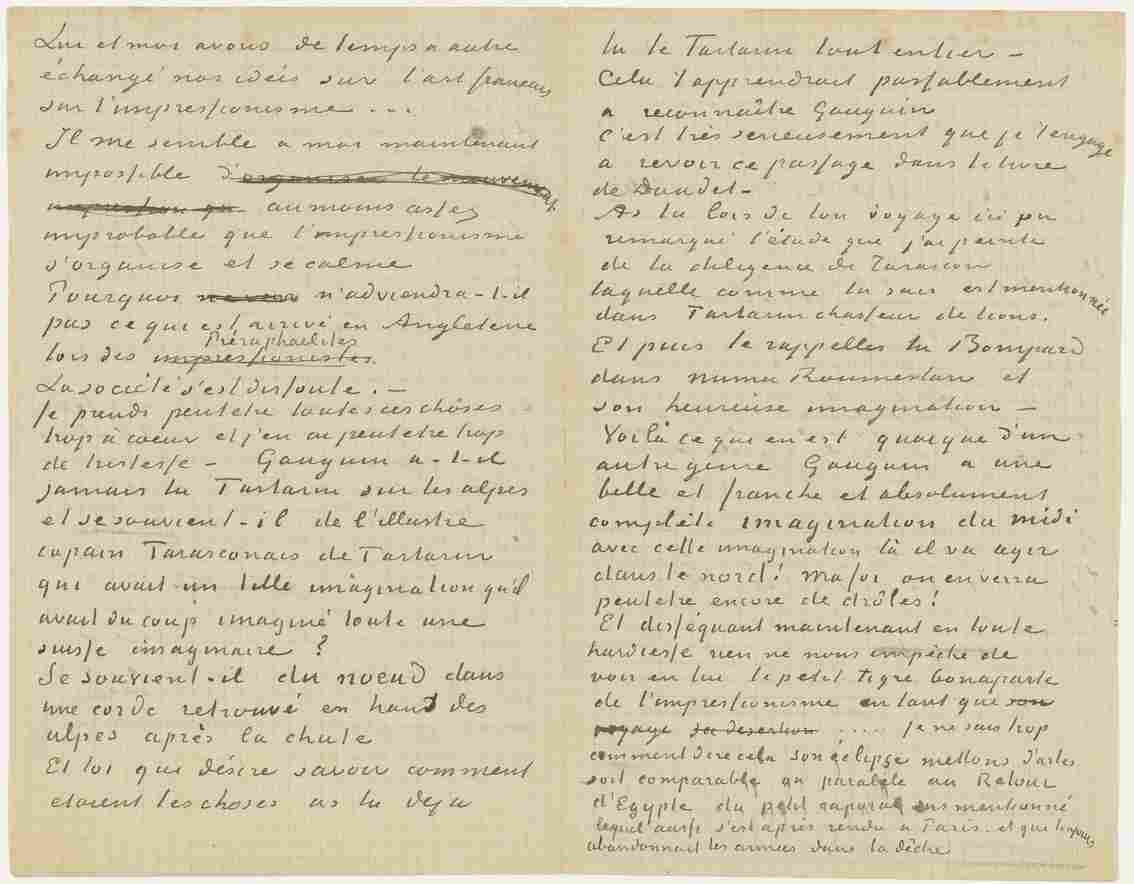 Lui et moi avons de temps a autre
échangé nos idées sur l'art français
sur l'impressionisme ...
Il me semble a moi maintenant
impossible d'organiser le mouvement
impression qu au moins assez
improbable que l'impressionisme
s'organise et se calme
Pourquoi n'adviendra-t-il
pas ce qui est arrivé en Angleterre
Préraphaelites
lors des impressionistes.
La société s'est dissoute. —
Je prends peutetre toutes ces choses
trop à coeur et j'en ai peutetre trop
de tristesse — Gauguin a-t-il
jamais lu Tartarin sur les alpes
et se souvient-il de l'illustre
copain Tarasconais de Tartarin
qui avait un telle imagination qu'il
avait du coup imaginé toute une
suisse imaginaire ?
Se souvient-il du noeud dans
une corde retrouvé en haut des
alpes après la chute
Et toi qui désire savoir comment
etaient les choses as tu deja
lu le Tartarin tout entier —
Cela t'apprendrait passablement
a reconnaître Gauguin
C'est très serieusement que je t'engage
a revoir ce passage dans le livre
de Daudet —
As tu lors de ton voyage ici pu
remarqué l'étude que j'ai peinte
de la diligence de Tarascon
laquelle comme tu sais est mentionnée
dans Tartarin chasseur de lions.
Et puis te rappelles tu Bompard
dans numa Roumestan et
son heureuse imagination —
Voilà ce que en est quoique d'un
autre genre Gauguin a une
belle et franche et absolument
complète imagination du midi
avec cette imagination là il va agir
dans le nord! ma foi on en verra
peutetre encore de drôles!
Et disséquant maintenant en toute
hardiesse rien ne nous empêche de
voir en lui le petit tigre bonaparte
de l'impressionisme en tant que son
voyage sa desertion ..... je ne sais trop
comment dire cela son éclipse mettons d'arles
soit comparable ou paralele au Retour
d'Egypte du petit caporal sus mentionné
lequel aussi s'est après rendu a Paris et qui toujours
abandonnait les armées dans la dêche